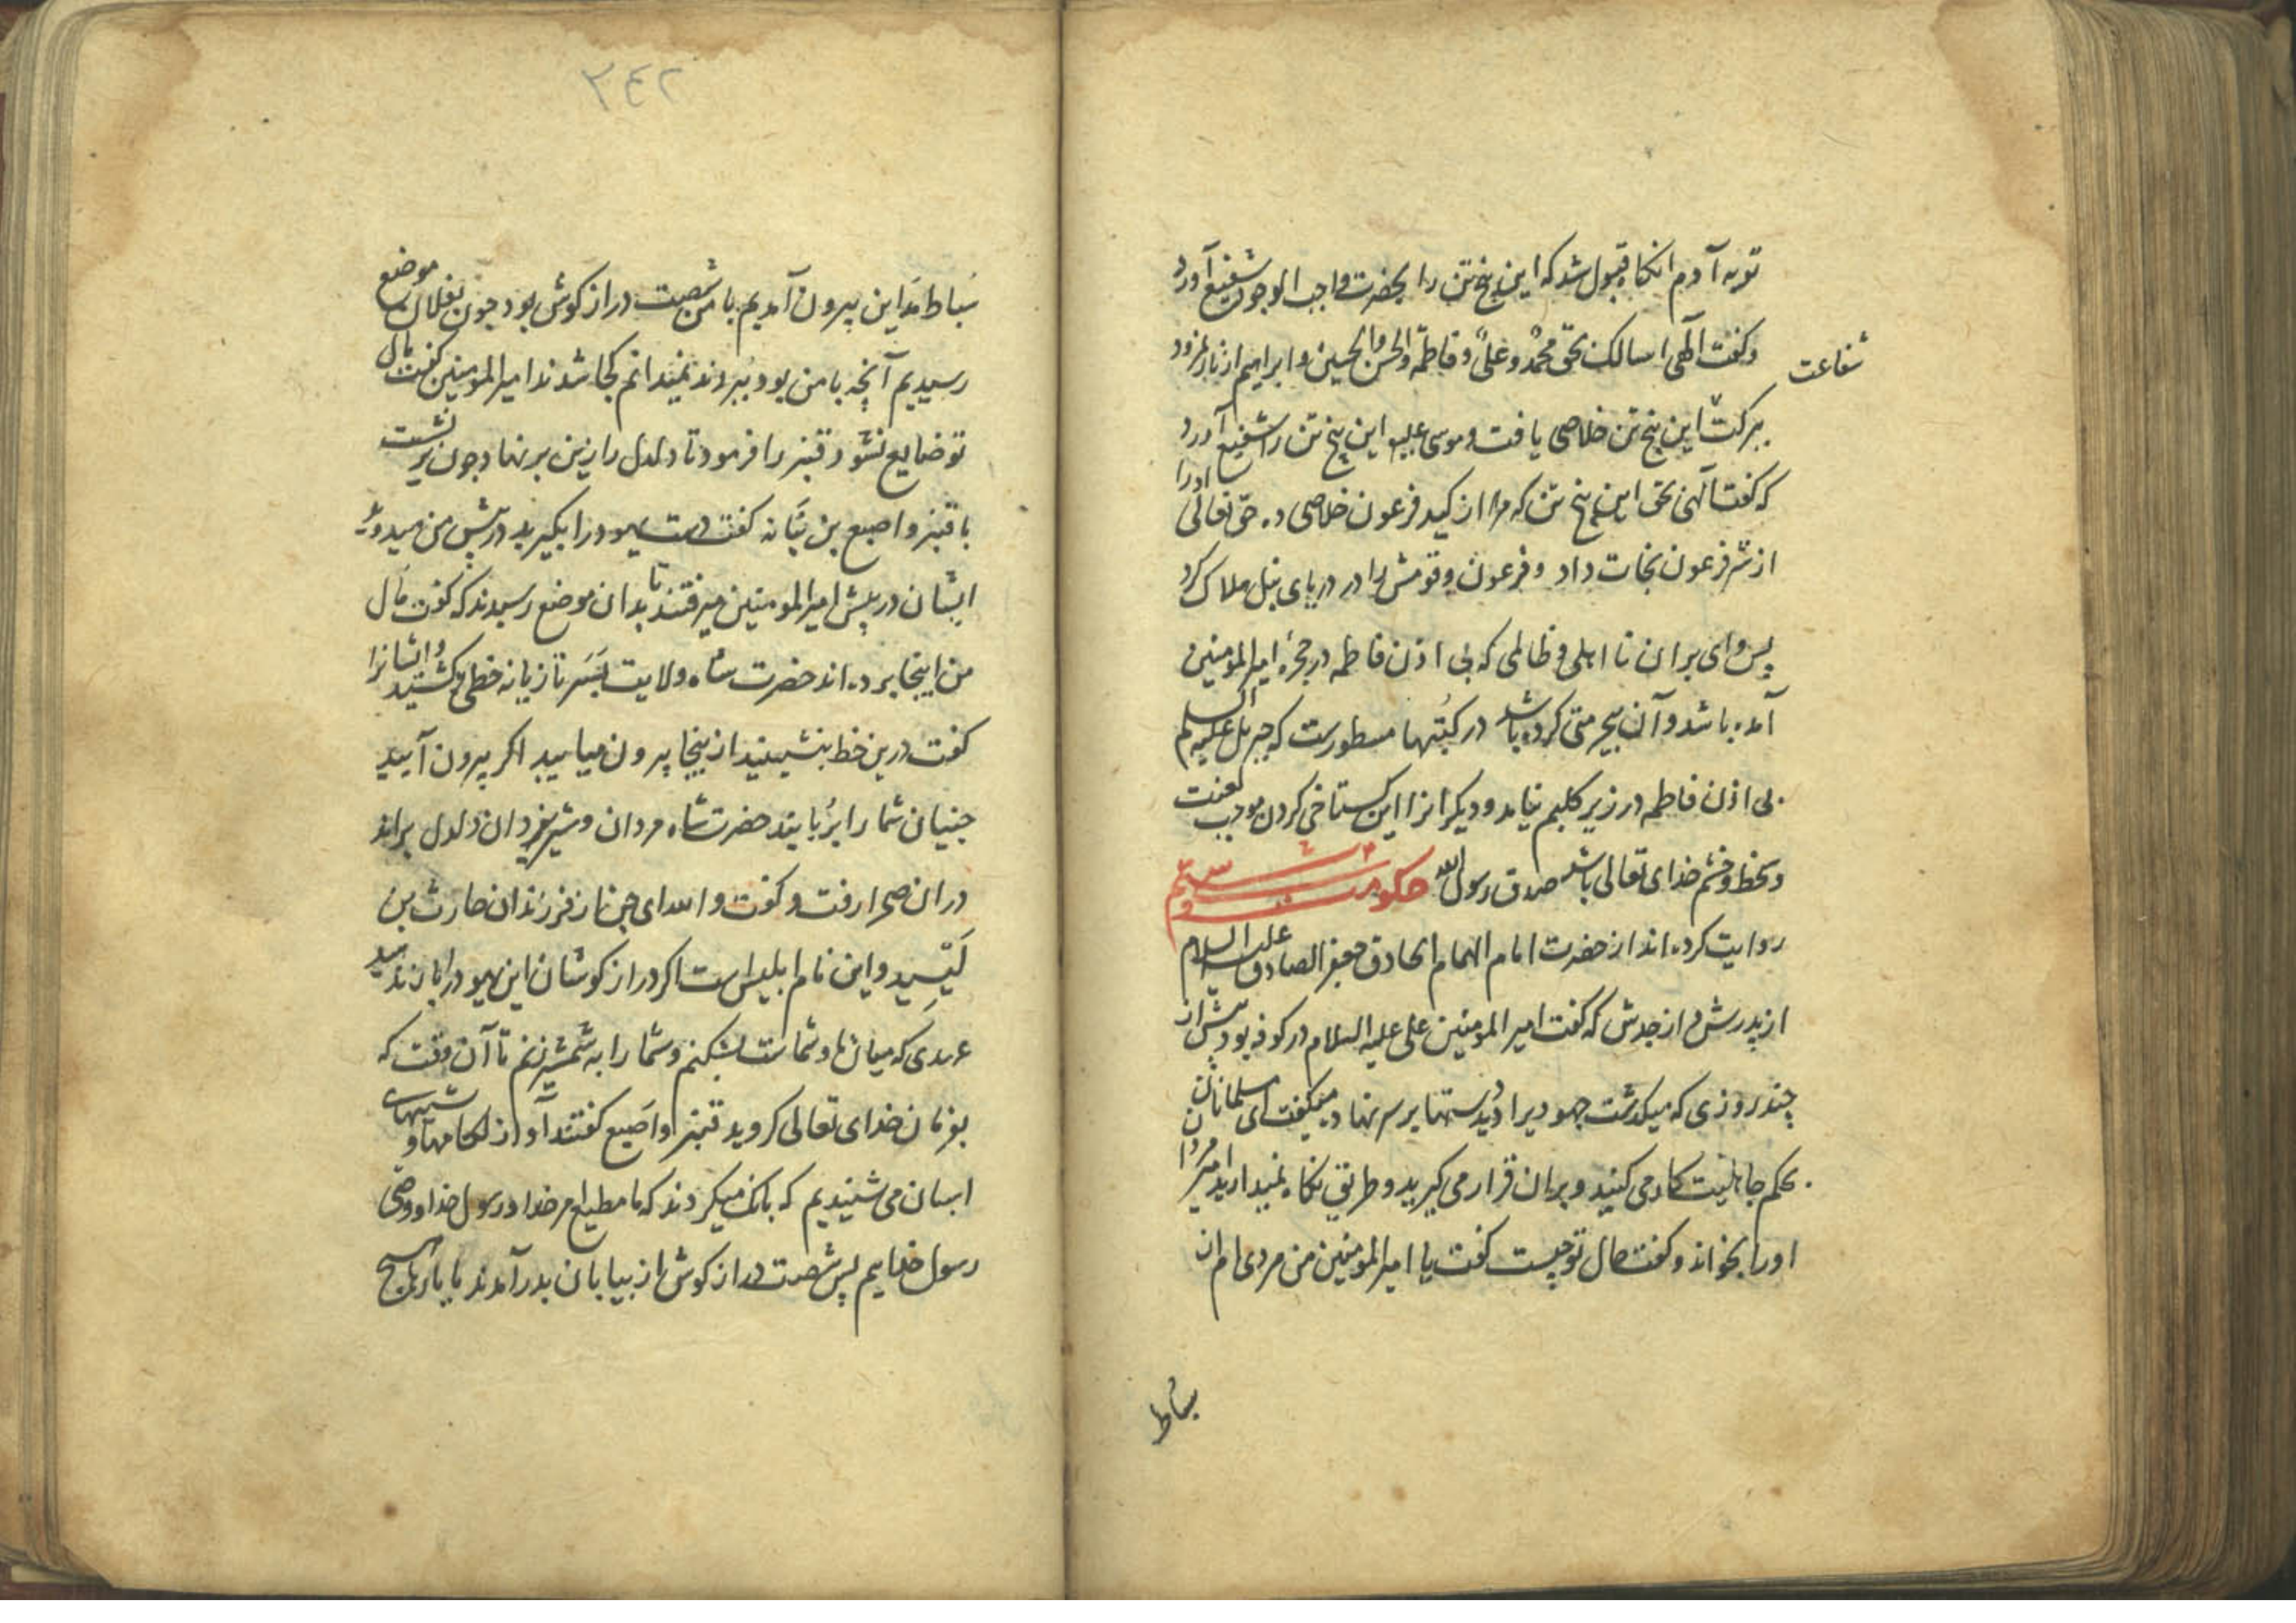 توبه آدم انکاه قبول شد که این پنج تن را بحضرت واجب الوجود شفیع آورد
وکفت آلهی اسالک بحق محمد وعلی وفاطمة والحسن والحسین وابراهیم از نار نمرود
شفاعت
ببرکت این پنج تن خلاصی یافت وموسی علیه این پنج تن را شفیع آورد
که کفت آلهی بحق این پنج تن که مرا از کید فرعون خلاصی ده حق تعالی اورا
از شر فرعون نجات داد وفرعون وقومش را در دریای نیل هلاک کرد
پس وای بران نا اهلی وظالمی که بی اذن فاطمه در حجرهٔ امیر المومنین
آمده باشد وآن بیحرمتی کرده باشد در کتبها مسطورست که جبریل علیه السلم
بی اذن فاطمه در زیر کلیم نیامد ودیکرانرا این کستاخی کردن موجب لعنت
وسخط وخشم خدای تعالی باشد صدق رسول الله حکومت
روایت کرده اند از حضرت امام الهمام الحاذق جعفر الصادق علیه السلام
از پدرش واز جدش که کفت امیر المومنین علی علیه السلام در کوفه بود پیش از
چند روزی که میکذشت جهودیرا دید دستها بر سر نهاد ومیکفت ای مسلمانان
بحکم جاهلیت کار می کنید وبران قرار می کیرید وطریق نکاه نمیدارید امیر مردا
اورا بخواند وکفت حال تو چیست کفت یا امیر المومنین من مردی ام از
سباط
٣٤٢
سباط مداین بیرون آمدیم با من شصت دراز کوش بود چون بفلان موضع
رسیدیم آنچه با من بود ببردند نمیدانم کجا شدند امیر المومنین کفت مال
تو ضایع نشود قنبر را فرمود تا دلدل را زین بر نهاد چون بر نشست
با قنبر واصبغ بن نباته کفت دست یهود را بکیرید در پیش من میدوید
ایشان در پیش امیر المومنین میرفتند تا بدان موضع رسیدند که کفت مال
من اینجا برده اند حضرت شاه ولایت بسر تازیانه خطی کشید وایشانرا
کفت درین خط بنشینید از ینجا بیرون میایید اکر بیرون آیید
جنیان شما را بربایند حضرت شاه مردان وشیر یزدان دلدل براند
دران صحرا رفت وکفت والله ای جنان از فرزندان حارث بن
لیسید واین نام ابلیس است اکر دراز کوشان این یهود را باز ندهید
عهدی که میان ما وشماست بشکنم وشما را به شمشیر زنم تا آن وقت که
بفرمان خدای تعالی کروید قنبر واصبغ کفتند آواز لکامها وشیهها
اسبان می شنیدیم که بانک میکردند که ما مطیع امر خدا ورسول خدا ووصی
رسول خداییم پس شصت دراز کوش از بیابان بدر آمدند با بار